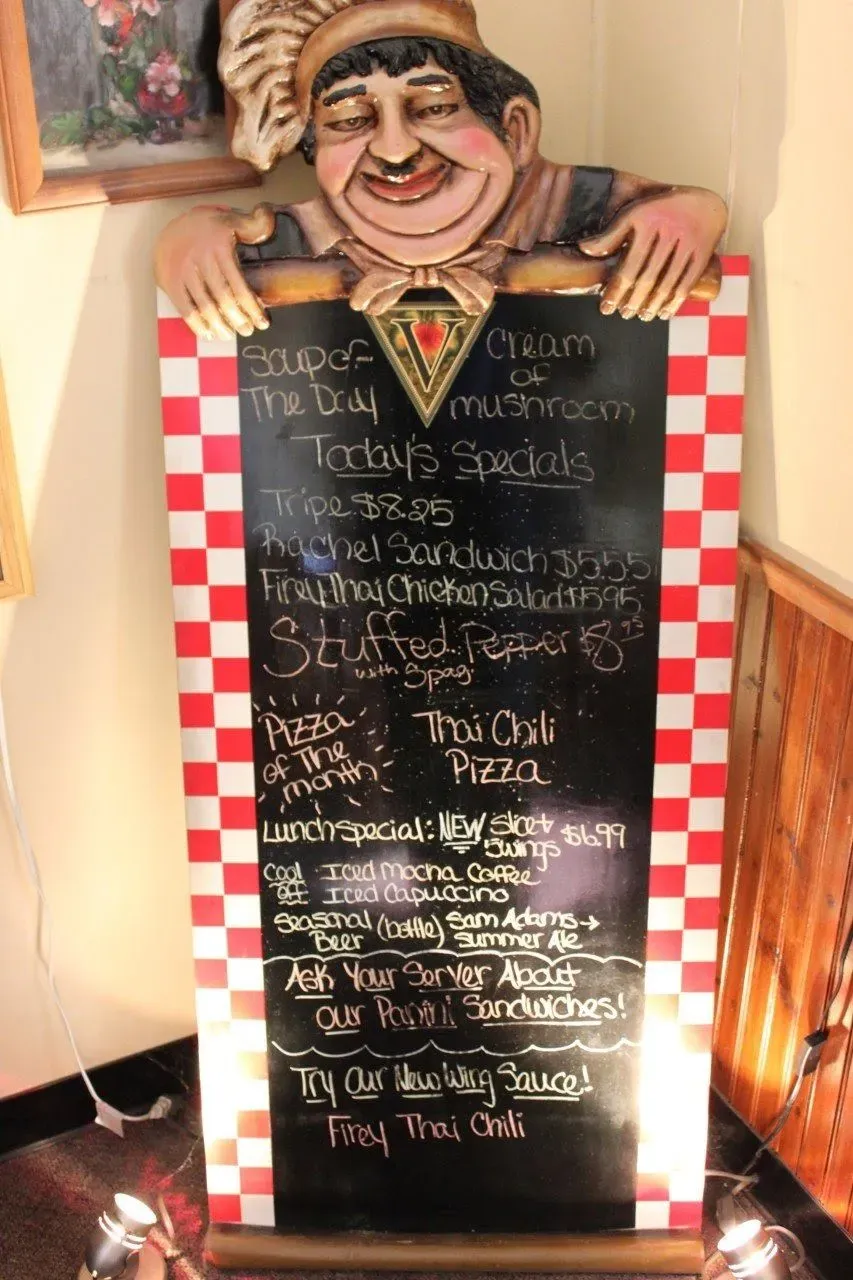 V
Soup of
The Day
Cream
of
mushroom
Today's Specials
Tripe $8.25
Rachel Sandwich $5.55
Firey Thai Chicken Salad $5.95
Stuffed Pepper $8.95
with Spag.
Pizza
of The
month
Thai Chili
Pizza
Lunch special: NEW Slice + $6.99
5wings
Cool Iced mocha Coffee
off Iced Capuccino
Seasonal (bottle) Sam Adams →
Beer Summer Ale
Ask Your Server About
our Panini Sandwiches!
Try Our New Wing Sauce!
Firey Thai Chili